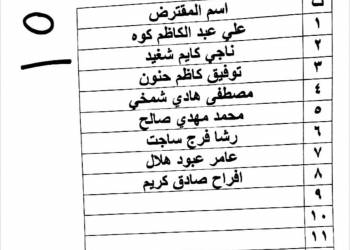 اسم المقترض
١ علي عبد الكاظم كوه
٢ ناجي كايم شغيد
٣ توفيق كاظم حنون
٤ مصطفى هادي شمخي
٥ محمد مهدي صالح
٦ رشا فرج ساجت
٧ عامر عبود هلال
٨ افراح صادق كريم
٩
١٠
١١